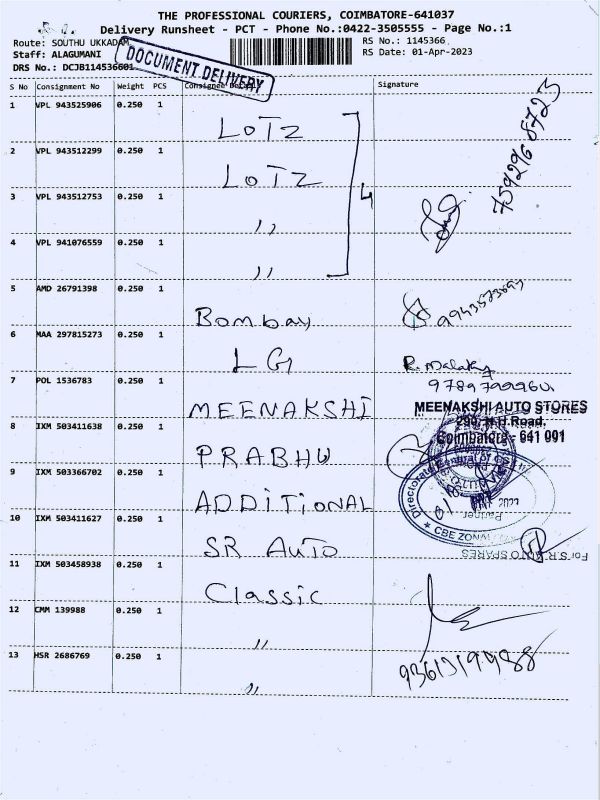 THE PROFESSIONAL COURIERS, COIMBATORE-641037
Delivery Runsheet - PCT - Phone No.:0422-3505555 - Page No.:1
Route: SOUTHU UKKADAM
RS No.: 1145366
Staff: ALAGUMANI
RS Date: 01-Apr-2023
DRS No.: DCJB114536601
DOCUMENT DELIVERY
S No Consignment No Weight PCS Consignee Details Signature
1 VPL 943525906 0.250 1 LOTZ
2 VPL 943512299 0.250 1 LOTZ
3 VPL 943512753 0.250 1 ,,
4
7592968723
4 VPL 941076559 0.250 1 ,,
5 AMD 26791398 0.250 1 Bombay
6 MAA 297815273 0.250 1 LG
7 POL 1536783 0.250 1 MEENAKSHI
MEENAKSHI AUTO STORES
290, N.H.Road,
Coimbatore - 641 001
8 IXM 503411638 0.250 1 PRABHU
9 IXM 503366702 0.250 1 ADDITIONAL
Directorate General of
CBE ZONAL
Partner
10 IXM 503411627 0.250 1 SR AUTO
For S.R. AUTO SPARES
11 IXM 503458938 0.250 1 Classic
12 CMM 139988 0.250 1 ,,
13 HSR 2686769 0.250 1 ,,